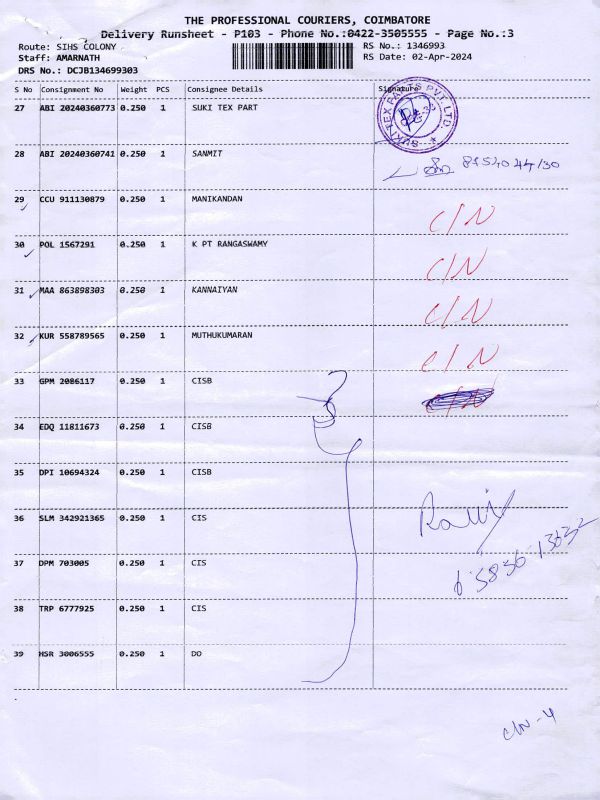 THE PROFESSIONAL COURIERS, COIMBATORE
Delivery Runsheet - P103 - Phone No.:0422-3505555 - Page No.:3
Route: SIHS COLONY RS No.: 1346993
Staff: AMARNATH RS Date: 02-Apr-2024
DRS No.: DCJB134699303
S No Consignment No Weight PCS Consignee Details Signature
27 ABI 20240360773 0.250 1 SUKI TEX PART
SUKI TEX PARTS PVT. LTD.
28 ABI 20240360741 0.250 1 SANMIT
29 CCU 911130879 0.250 1 MANIKANDAN C/N
30 POL 1567291 0.250 1 K PT RANGASWAMY C/N
31 MAA 863898303 0.250 1 KANNAIYAN C/N
32 KUR 558789565 0.250 1 MUTHUKUMARAN C/N
33 GPM 2086117 0.250 1 CISB
34 EDQ 11811673 0.250 1 CISB
35 DPI 10694324 0.250 1 CISB
36 SLM 342921365 0.250 1 CIS
37 DPM 703005 0.250 1 CIS
38 TRP 6777925 0.250 1 CIS
39 HSR 3006555 0.250 1 DO
C/N - 4